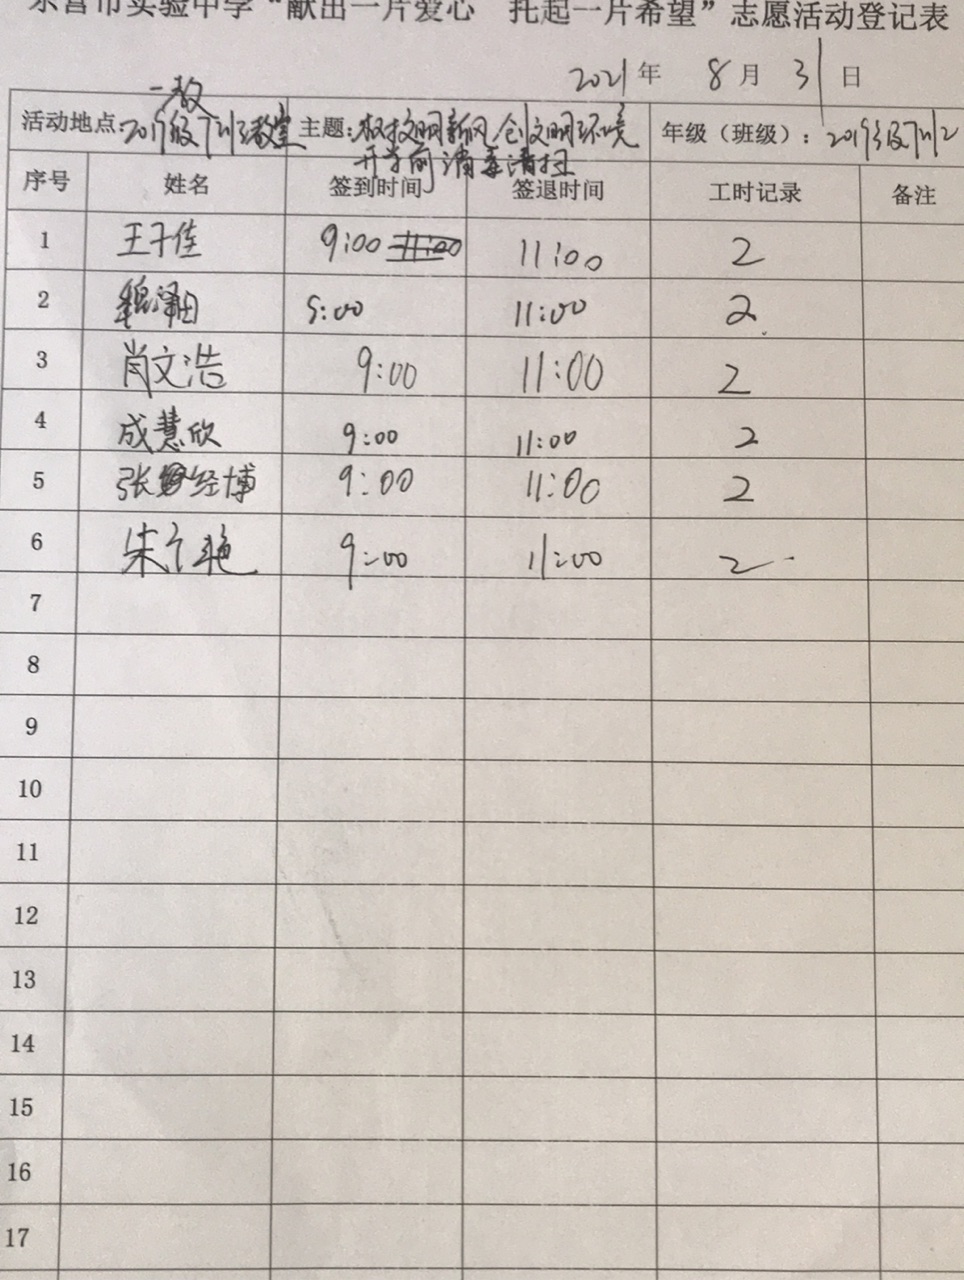 东营市实验中学“献出一片爱心 托起一片希望”志愿活动登记表
2021年 8月 31日
一教
活动地点：2019级 主题：文明新风 创文明环境 年级（班级）：2019级
开学前消毒清扫
序号 姓名 签到时间 签退时间 工时记录 备注
1 王子佳 9:00 11:00 2
2 9:00 11:00 2
3 肖文浩 9:00 11:00 2
4 成慧欣 9:00 11:00 2
5 张经博 9:00 11:00 2
6 朱 艳 9:00 11:00 2
7
8
9
10
11
12
13
14
15
16
17